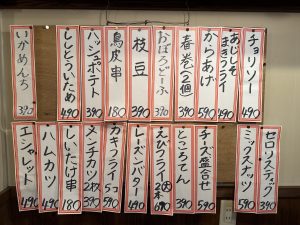 チョリソー 490
あじしそまきフライ 490
からあげ 590
春巻(2個) 390
おぼろどーふ 390
枝豆 390
鳥皮串 180
ハッシュポテト 390
ししとういため 490
いかめんち 390
セロリスティック 390
ミックスナッツ 590
チーズ盛合せ 590
ところてん 390
えびフライ2本 690
レーズンバター 490
カキフライ5コ 590
メンチカツ2枚 390
しいたけ串 180
ハムカツ 490
エシャレット 490